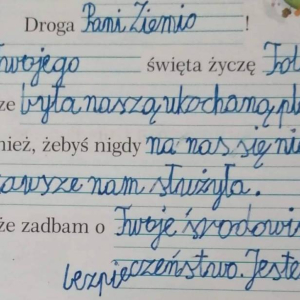 Droga Pani Ziemio !
Twojego święta życzę
że była naszą ukochaną
nież, żebyś nigdy na nas się
zawsze nam służyła.
że zadbam o Twoje
bezpieczeństwo.